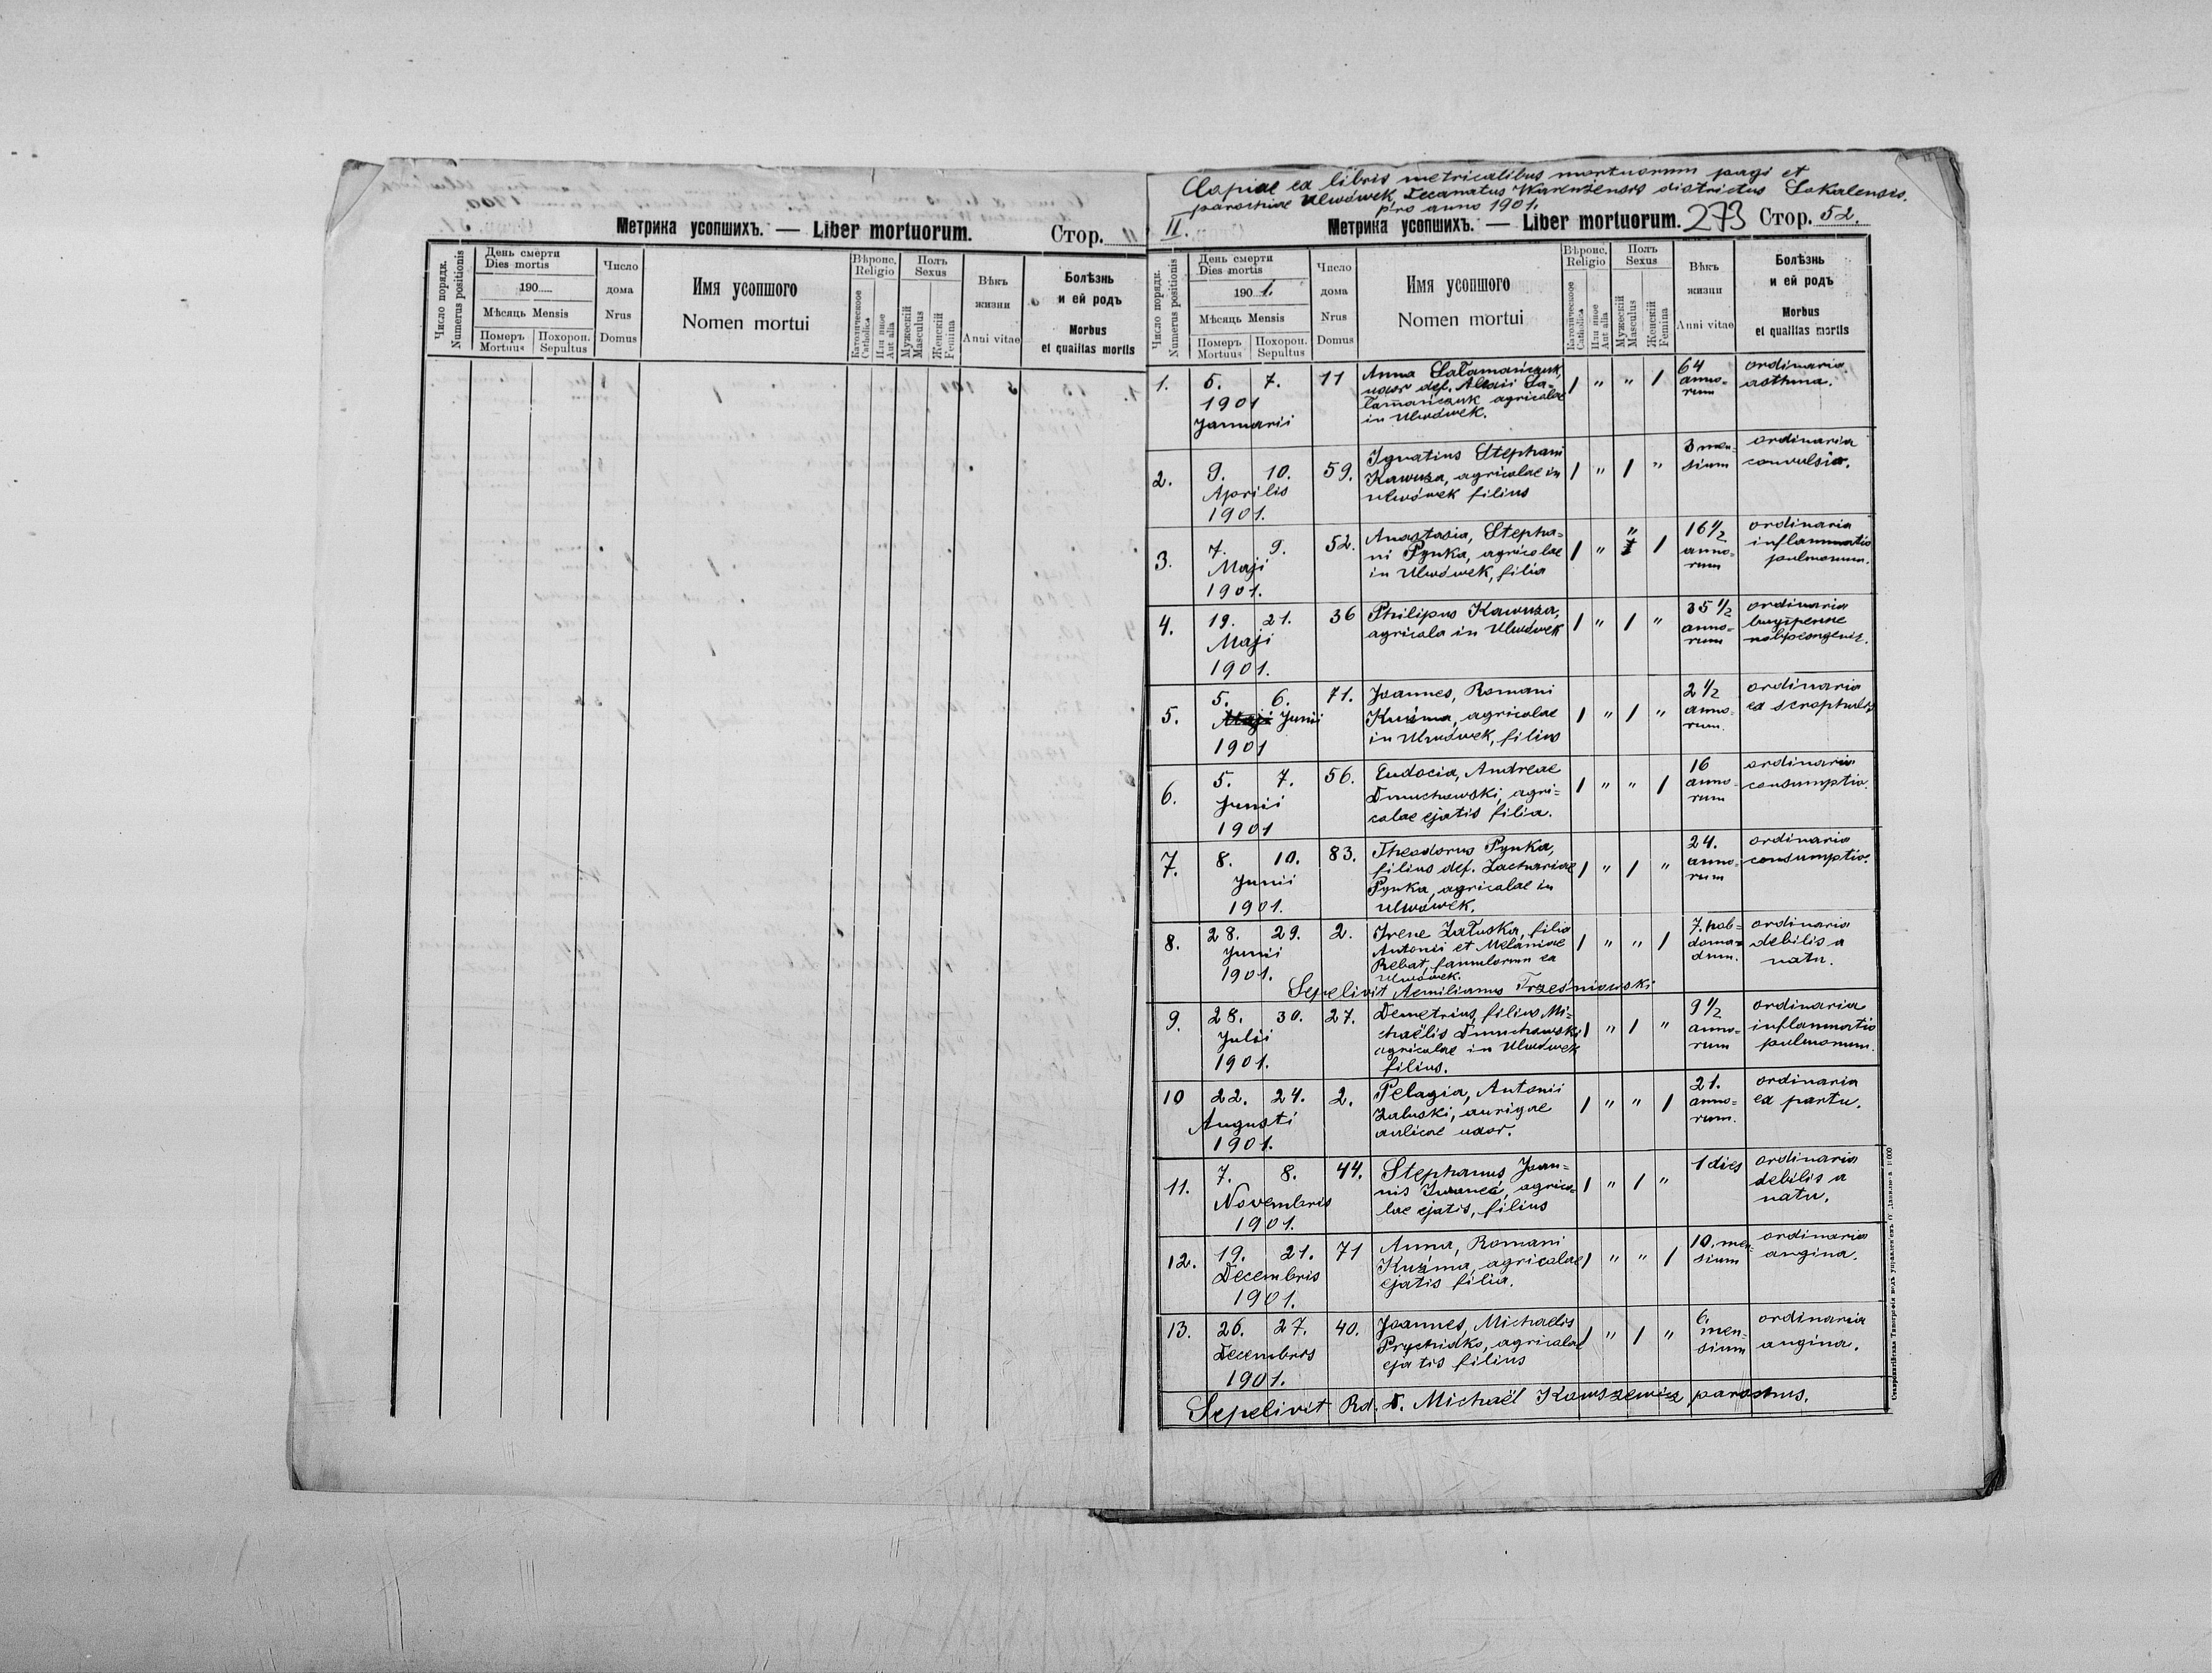 Метрика усопшихъ. — Liber mortuorum. Стор.
Число порядк. Numerus positionis
День смерти Dies mortis
190
Мѣсяць Mensis
Померъ Mortuus
Похорон. Sepultus
Число дома Nrus Domus
Имя усопшого Nomen mortui
Вѣроис. Religio
Католическоое Catholica
Или иное Aut alia
Полъ Sexus
Мужескій Masculus
Женскій Femina
Вѣкъ жизни Anni vitae
Болѣзнь и ей родъ
Morbus et qualitas mortis
Copiae ex libris metricalibus mortuorum pagi et
parochiae Ulwówek, Decanatus Warenzensis districtus Sokalensis.
pro anno 1901.
II.
Метрика усопшихъ. — Liber mortuorum. 273 Стор. 52.
Число порядк. Numerus positionis
День смерти Dies mortis
190 1.
Мѣсяць Mensis
Померъ Mortuus
Похорон. Sepultus
Число дома Nrus Domus
Имя усопшого Nomen mortui
Вѣроис. Religio
Католическоое Catholica
Или иное Aut alia
Полъ Sexus
Мужескій Masculus
Женскій Femina
Вѣкъ жизни Anni vitae
Болѣзнь и ей родъ
Morbus et qualitas mortis
1. 5. 7. 11 Anna Sałamańczuk, / " " / 64 ordinaria
1901 uxor def. Alexii Sa= anno= asthma.
Januarii łamańczuk agricolae rum
in Ulwówek.
2. 9. 10. 59. Ignatius Stephani / " / " 3 men= ordinaria
Aprilis Kawuza, agricolae in sium convulsio.
1901. Ulwówek filius
3. 7. 9. 52. Anastasia, Stepha= / " " / 16 1/2 ordinaria
Maji ni Pynka, agricolae anno= inflammatio
1901. in Ulwówek, filia rum pulmonum.
4. 19. 21. 36 Philipus Kawuza, / " / " 35 1/2 ordinaria
Maji agricola in Ulwówek anno=
1901. rum
5. 5. 6. 71. Joannes, Romani / " / " 2 1/2 ordinaria
Junii Kuźma, agricolae anno= ex
1901 in Ulwówek, filius rum.
6. 5. 7. 56. Eudocia, Andreae / " " / 16 ordinaria
Junii Dmuchowski, agri= anno= consumptio.
1901 colae ejatis filia. rum
7. 8. 10. 83. Theodorus Pynka, / " / " 24. ordinaria
Junii filius def. Zachariae anno= consumptio.
1901. Pynka, agricolae in rum
Ulwówek.
8. 28. 29. 2. Irene Załuska, filia / " " / 7. heb= ordinaria
Junii Antonii et Melaniae doma= debilis a
1901. Rebat, famulorum ex dum. natu.
Ulwówek.
Sepelivit Aemilianus Trześniowski
9. 28. 30. 27. Demetrius, filius Mi= / " / " 9 1/2 ordinaria
Julii chaëlis Dmuchowski anno= inflammatio
1901. agricolae in Ulwówek rum pulmonum.
filius.
10 22. 24. 2. Pelagia, Antonii / " " / 21. ordinaria
Augusti Załuski, aurigae anno= ex partu.
1901. aulicae uxor. rum.
11. 7. 8. 44. Stephanus, Joan= / " / " 1 dies ordinaria
Novembris nis agrico= debilis a
1901. lae ejatis, filius natu.
12. 19. 21. 71 Anna, Romani / " " / 10. men= ordinaria
Decembris Kuźma, agricolae sium angina.
1901. ejatis filia.
13. 26. 27. 40. Joannes, Michaelis / " / " 6. ordinaria
Decembris Prychidko, agricolae men= angina.
1901. ejatis filius sium
Sepelivit Rd. D. Michaël Kowszewicz parochus.